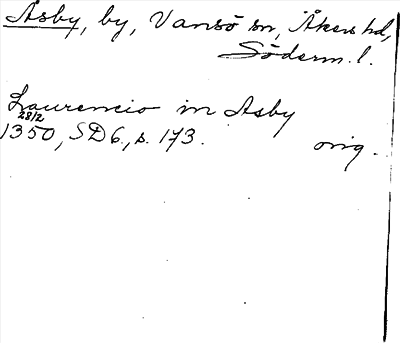 Åsby, by, Vansö sn, Åkers hd,
Söderm. l.
Laurencio in Asby
28/2
1350, SD 6, s. 173. orig.